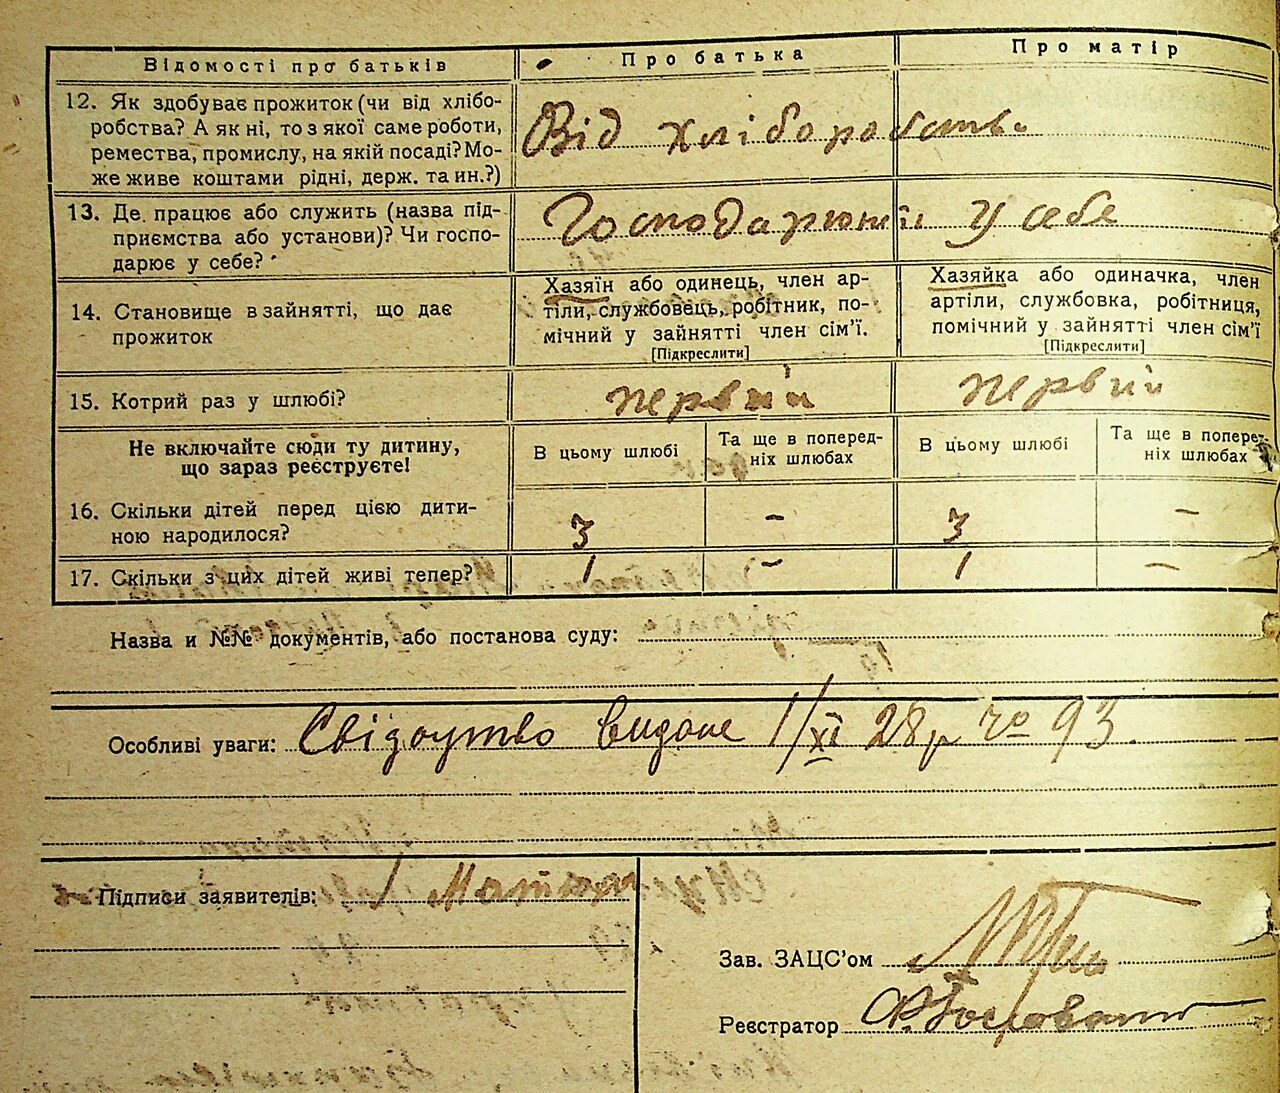 Відомості про батьків
Про батька
Про матір
12. Як здобуває прожиток (чи від хлібо-
робства? А як ні, то з якої саме роботи,
ремества, промислу, на якій посаді? Мо-
же живе коштами рідні, держ. та ин.?)
Від хліборобства
13. Де працює або служить (назва під-
приємства або установи)? Чи госпо-
дарює у себе?
Господарюють у себе
14. Становище в зайнятті, що дає
прожиток
Хазяїн або одинець, член ар-
тіли, службовець, робітник, по-
мічний у зайнятті член сім'ї.
[Підкреслити]
Хазяйка або одиначка, член
артіли, службовка, робітниця,
помічний у зайнятті член сім'ї
[Підкреслити]
15. Котрий раз у шлюбі?
первий
первий
Не включайте сюди ту дитину,
що зараз реєструєте!
В цьому шлюбі
Та ще в поперед-
ніх шлюбах
В цьому шлюбі
Та ще в поперед-
ніх шлюбах
16. Скільки дітей перед цією дити-
ною народилося?
3 - 3 -
17. Скільки з цих дітей живі тепер?
1 - 1 -
Назва и №№ документів, або постанова суду:
Особливі уваги: Свідоцтво видане 1/XI 28р чо 93.
Підписи заявителів:
Зав. ЗАЦС'ом
Реєстратор